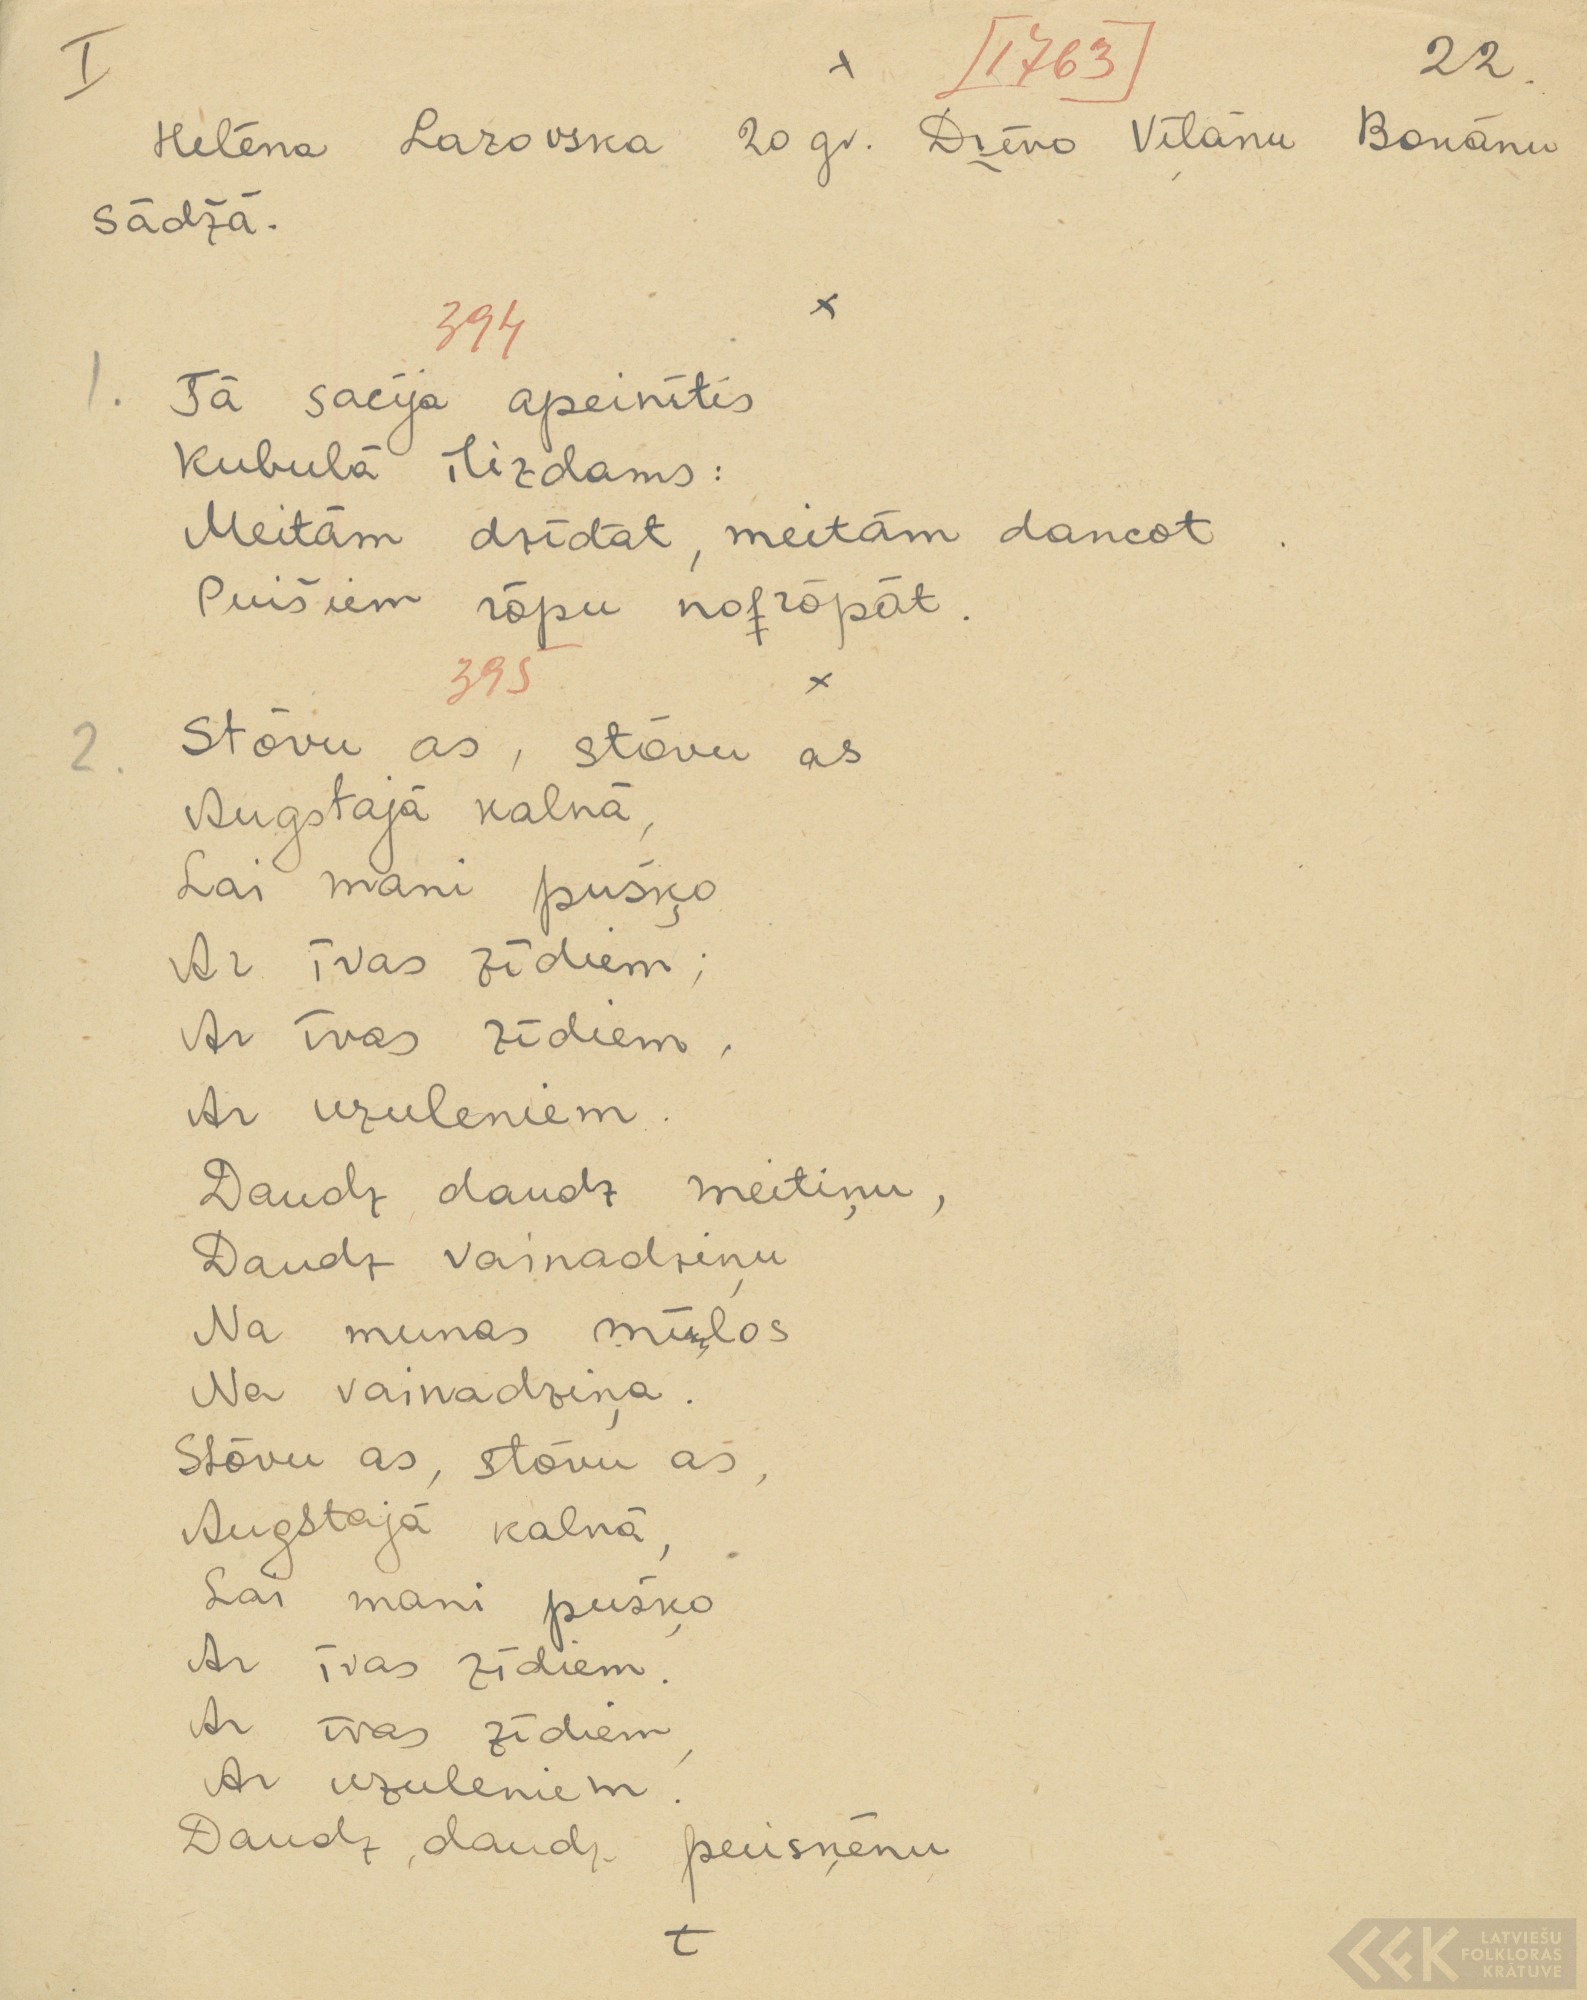 I x [1763] 22.
Helēna Lazovska 20 gv. Dzēvo Viļānu Bonānu
sādžā.
394 x
1. Tā sacīja apeinītis
Kubulā īlizdams:
Meitām dzīdāt, meitām dancot.
Puišiem rōpu nosrōpāt.
395 x
2. Stōvu as, stōvu as
Augstajā kalnā,
Lai mani pušķo
Ar īvas zīdiem;
Ar īvas zīdiem,
Ar uzuleniem.
Daudz daudz meitiņu,
Daudz vainadziņu
Na munas
Na vainadziņa.
Stōvu as, stōvu as,
Augstajā kalnā,
Lai mani pušķo
Ar īvas zīdiem.
Ar īvas zīdiem,
Ar uzuleniem.
Daudz, daudz puisņēnu
t
LATVIEŠU
FOLKLORAS
KRĀTUVE